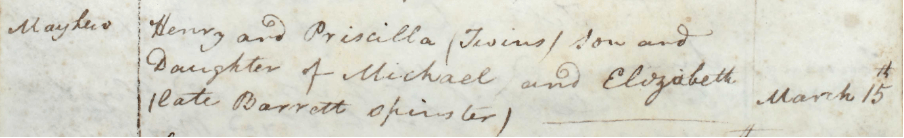 Mayhew Henry and Priscilla (Twins) Son and
Daughter of Michael and Elizabeth
(late Barrett Spinster) March 15th